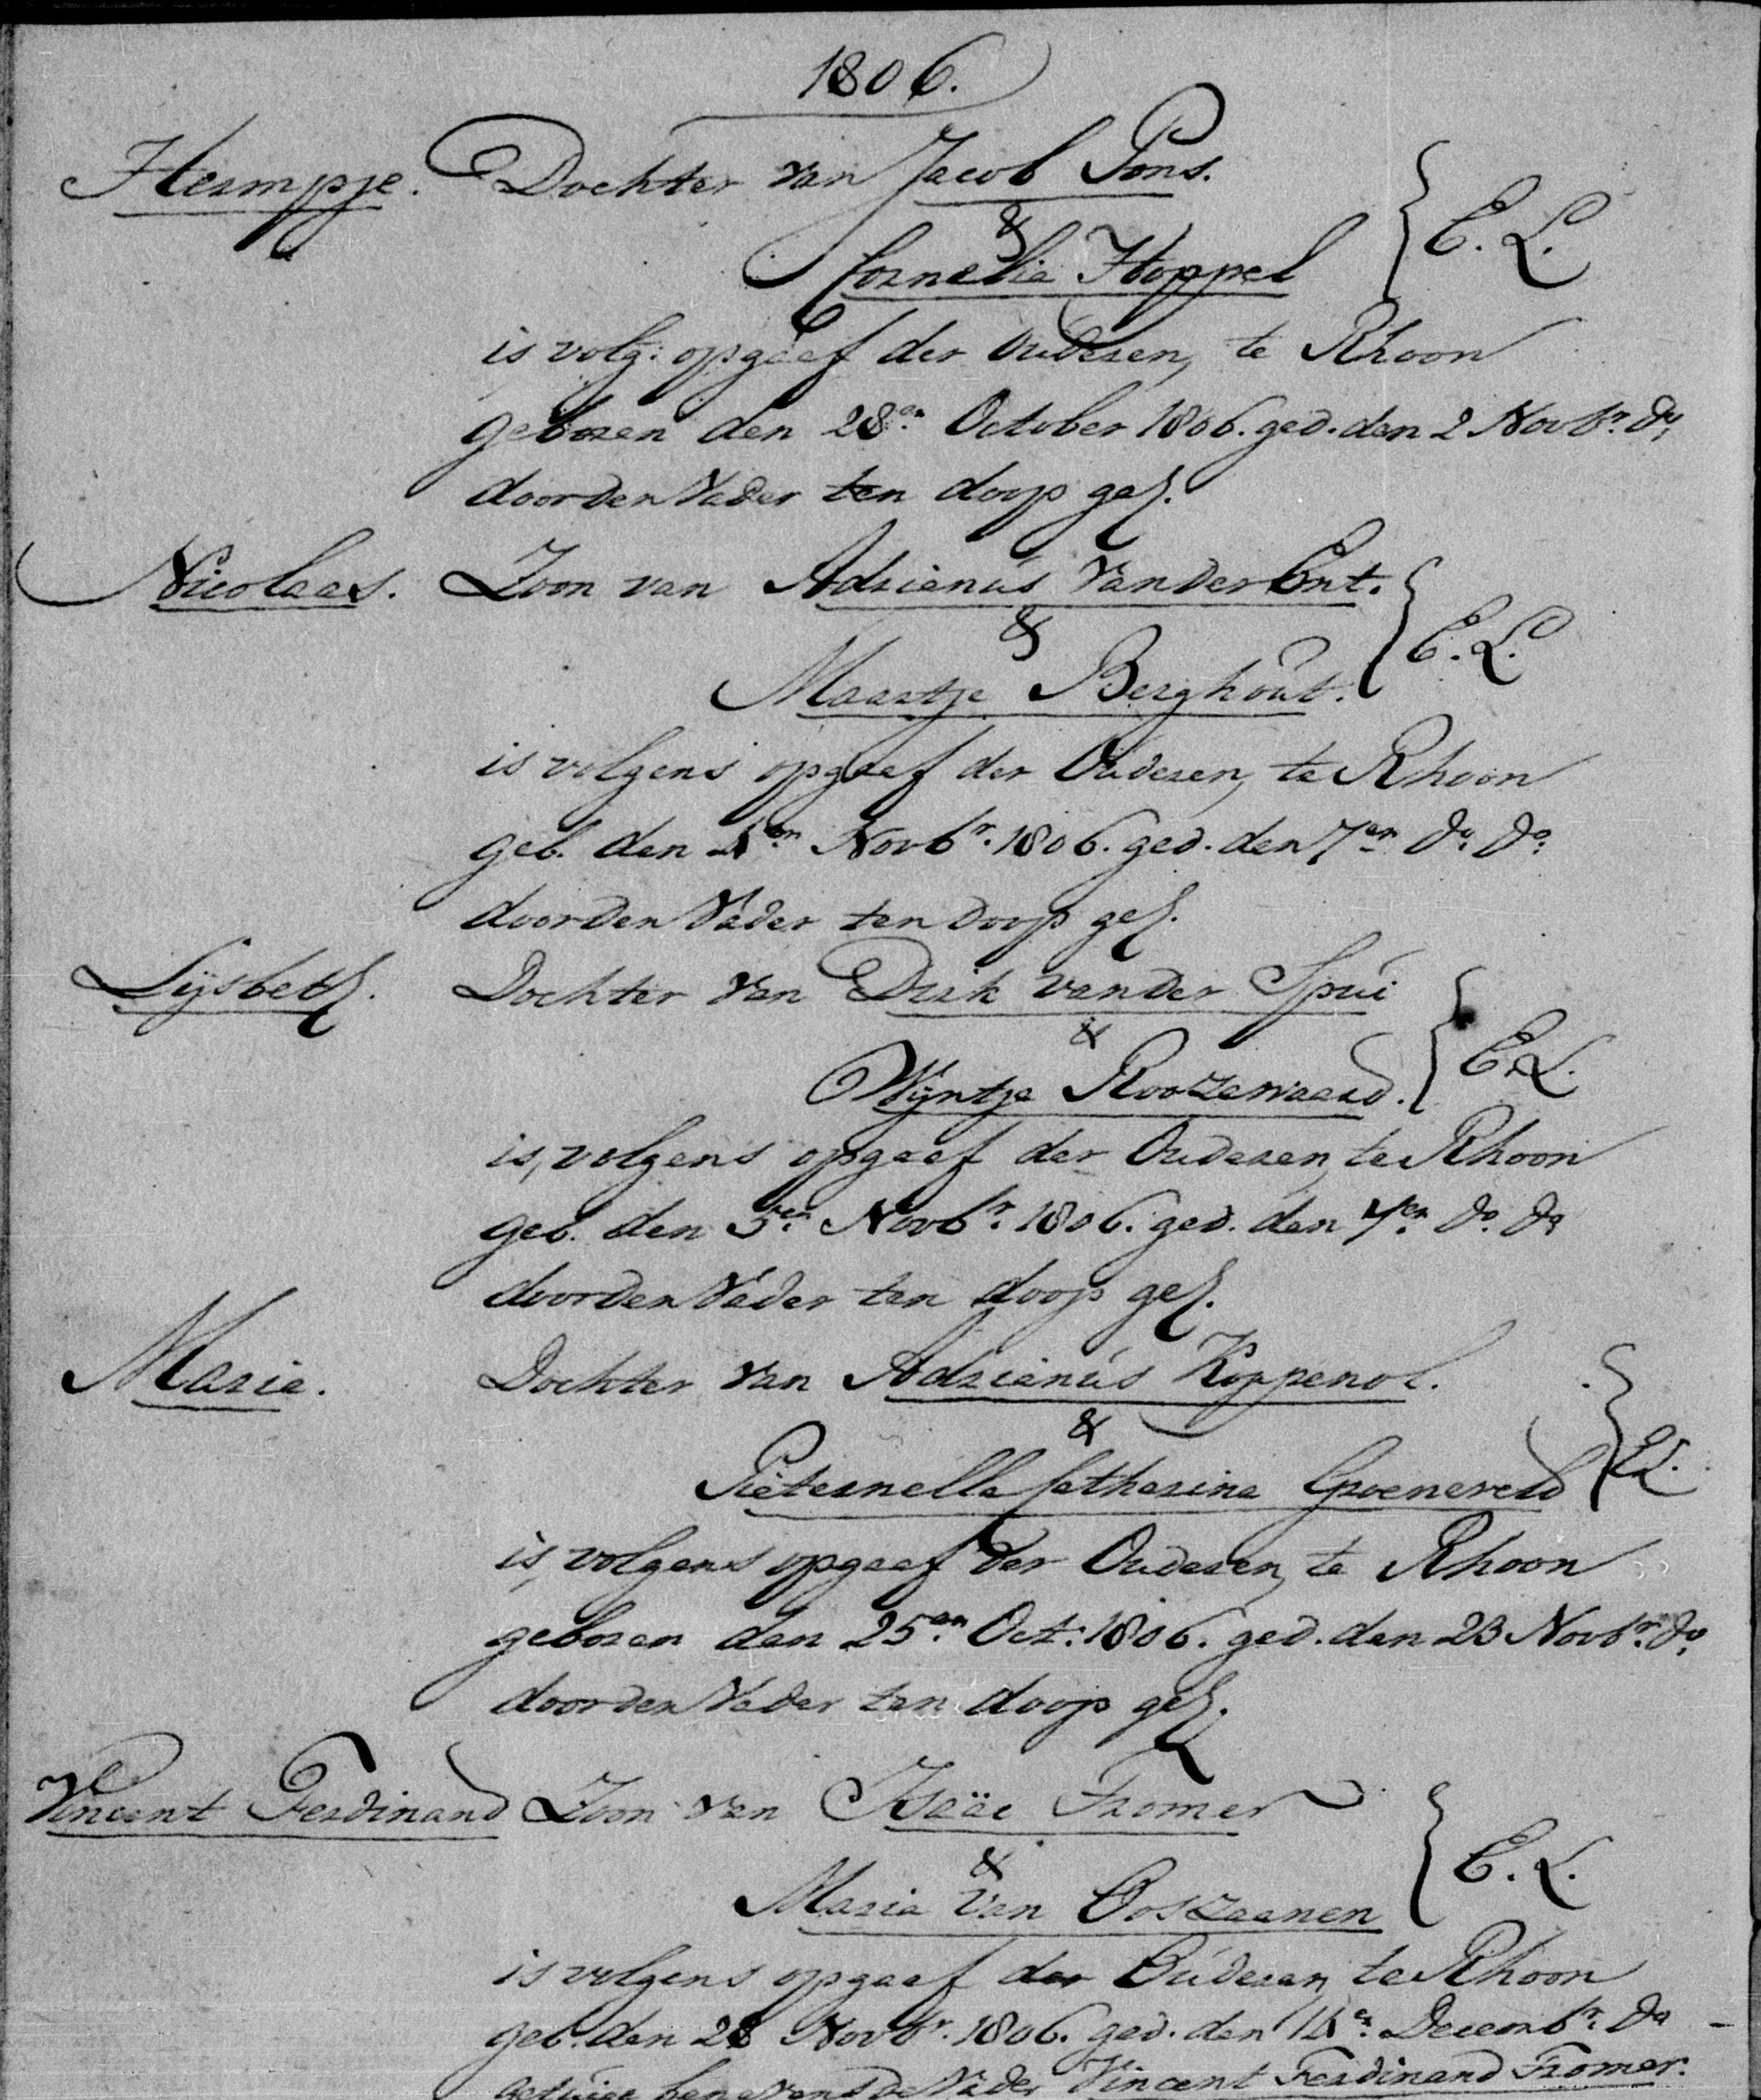 1806.
Hermpje. Dochter van Jacob Pons.
&
Cornelia Hoppel } E. L.
is volg: opgaef der Ouderen, te Rhoon
geboren den 28en October 1806. ged. den 2 Novbr. do,
door den Vader ten doop geh.
Nicolaas. Zoon van Adrianus van der Ent.
&
Maartje Berghout. } E. L.
is volgens opgaef der Ouderen, te Rhoon
geb. den 4en Novbr. 1806. ged. den 7en do. do.
door den Vader ten doop geh.
Lijsbeth. Dochter van Dirk van der Spui
&
Wijntje Roozewaard. } E. L.
is, volgens opgaef der Ouderen, te Rhoon
geb. den 5en Novbr. 1806. ged. den 7en do. do
door den Vader ten doop geh.
Maria. Dochter van Adrianus Koppenol.
&
Pieternella Catharina Groeneveld } EL.
is, volgens opgaef der Ouderen, te Rhoon
geboren den 25en Oct: 1806. ged. den 23 Novbr. do,
door den Vader ten doop geh.
Vincent Ferdinand Zoon van Isaäc Fromer
&
Maria van Ooszaanen } E. L.
is volgens opgaef der Ouderen, te Rhoon
geb. den 28 Novbr. 1806. ged. den 14en Decembr. do
getuige benevens de Vader Vincent Ferdinand Fromer.